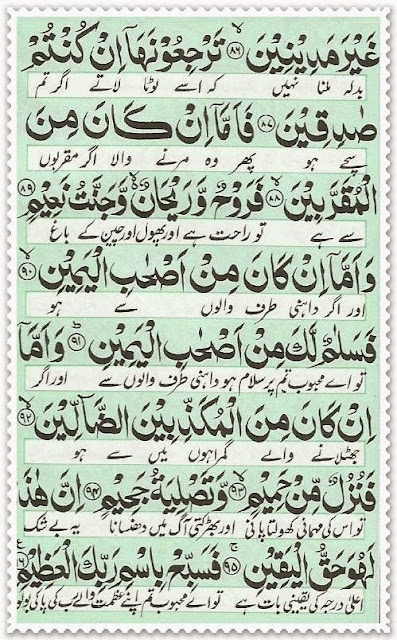 غَيْرَ مَدِيْنِيْنَ ۝۸۶ تَرْجِعُوْنَهَاۤ اِنْ كُنْتُمْ
بدلہ ملنا نہیں کہ اسے لوٹا لاتے اگر تم
صٰدِقِيْنَ ۝۸۷ فَاَمَّاۤ اِنْ كَانَ مِنَ
سچے ہو پھر وہ مرنے والا اگر مقربوں
الْمُقَرَّبِيْنَ ۝۸۸ فَرَوْحٌ وَّرَيْحَانٌ وَّجَنَّتُ نَعِيْمٍ ۝۸۹
سے ہے تو راحت ہے اور پھول اور چین کے باغ
وَاَمَّاۤ اِنْ كَانَ مِنْ اَصْحٰبِ الْيَمِيْنِ ۝۹۰
اور اگر داہنی طرف والوں سے ہو
فَسَلٰمٌ لَّكَ مِنْ اَصْحٰبِ الْيَمِيْنِ ۝۹۱ وَاَمَّاۤ
تو اے محبوب تم پر سلام ہو داہنی طرف والوں سے اور اگر
اِنْ كَانَ مِنَ الْمُكَذِّبِيْنَ الضَّآلِّيْنَ ۝۹۲
جھٹلانے والے گمراہوں میں سے ہو
فَنُزُلٌ مِّنْ حَمِيْمٍ ۝۹۳ وَّتَصْلِيَةُ جَحِيْمٍ ۝۹۴ اِنَّ هٰذَا
تو اس کی مہمانی کھولتا پانی اور بھڑکتی آگ میں دھنسانا یہ بے شک
لَهُوَ حَقُّ الْيَقِيْنِ ۝۹۵ فَسَبِّحْ بِاسْمِ رَبِّكَ الْعَظِيْمِ
اعلیٰ درجہ کی یقینی بات ہے تو اے محبوب تم اپنے عظمت والے رب کی پاکی بولو